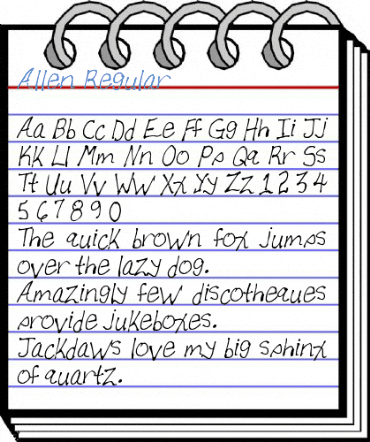 Allen Regular
Aa Bb Cc Dd Ee Ff Gg Hh Ii Jj
Kk Ll Mm Nn Oo Pp Qq Rr Ss
Tt Uu Vv Ww Xx Yy Zz 1 2 3 4
5 6 7 8 9 0
The quick brown fox jumps
over the lazy dog.
Amazingly few discotheques
provide jukeboxes.
Jackdaws love my big sphinx
of quartz.